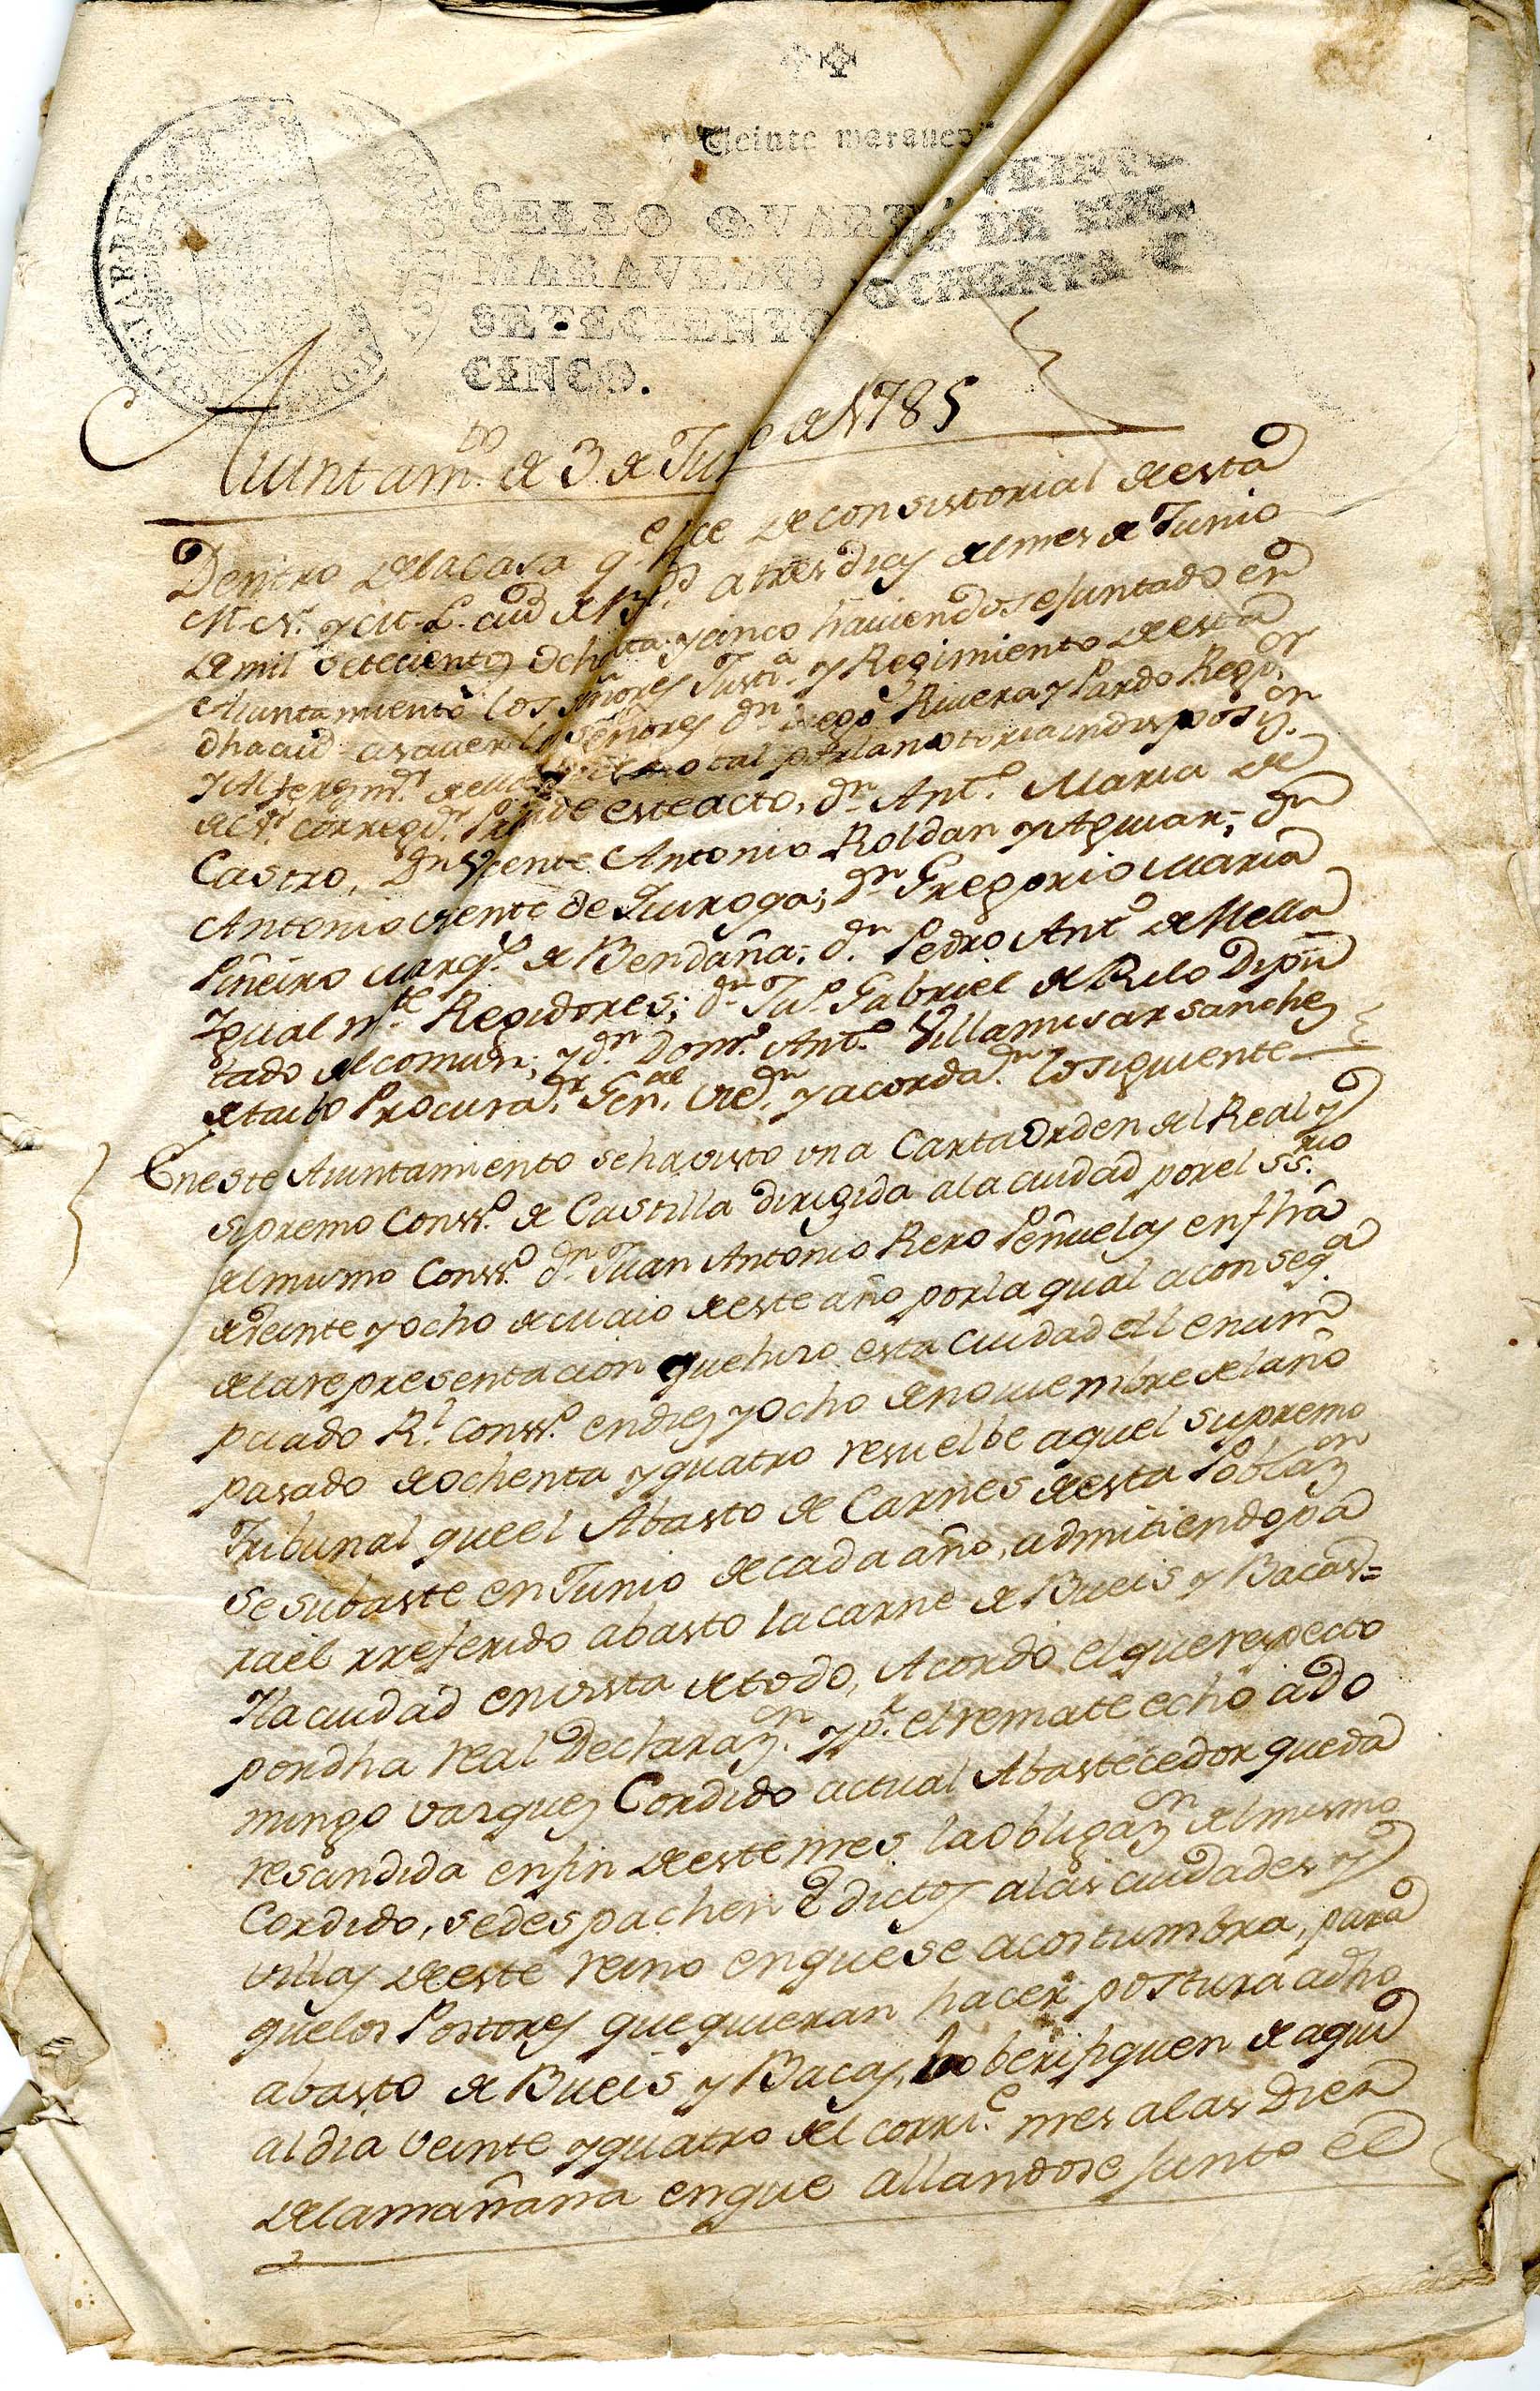 Veinte maraued
SELLO QVART VEINTE
MARAVEDIS, DE MIL
SETECIENTO OCHENTA
CINCO.
Aiuntam.to de 3 de Ju o de 1785
Dentro de la Casa q.e sice de consistorial de esta
M. N. y M. L. ciud de B.d a tres dias del mes de Junio
de mil setecientos och ta y cinco haviendose juntado en
Aiuntamiento los señores Justi.a y Regimiento de esta
dha ciud asauer los señores d.n Diego Rivera y Pardo Reg.or
y Alferez m.r de ella tal por la notoria indisposiz.on
de S.r Correg.dr Pre de este acto, d.n Ant.o Maria de
Castro, D.n Vicente Antonio Roldan y Aguiar; d.n
Antonio Vicente de Quiroga; d.n Gregorio Maria
Piñeiro Marq.s de Bendaña; d.n Pedro Ant.o de Mella
Igual m.te Regidores; d.n Ju.o Gabriel de Rilo Dipu
tado del comun; y d.n Dom.o Ant.o Villamisar sanchez
de taibo Procura.dr Gen.al y acorda.n lo siguiente
En este Aiuntamiento se ha visto una Carta Orden del Real y
supremo Conss.o de Castilla dirigida a la ciudad por el ss.rio
del mismo Conss.o d.n Juan Antonio Rero Peñuelas en fha
de veinte y ocho de Maio de este año por la qual a conseq.a
de la representacion que hizo esta Ciudad al enun
ciado R.l Conss.o en diez y ocho de noviembre del año
pasado de ochenta y quatro resuelbe aquel supremo
Tribunal que el Abasto de Carnes de esta Poblaz.on
se subaste en Junio de cada año, admitiendo pa
ra el rreferido abasto la carne de Bueis y Bacas=
Y la ciudad en vista de todo, Acordó el que respecto
por dha real Declaraz.on y p.r el remate echo a do
mingo vazquez Cordido actual Abastecedor queda
rescindida en fin de este mes la obligaz.on del mismo
Cordido, se despachen Edictos a las ciudades y
villas de este reino en que se acostumbra, para
que los Postores que quieran hacer postura a dho
abasto de Bueis y Bacas, lo berifiquen de aqui
al dia veinte y quatro del corri.e mes a las Diez
de la mañana en que allandose junto el